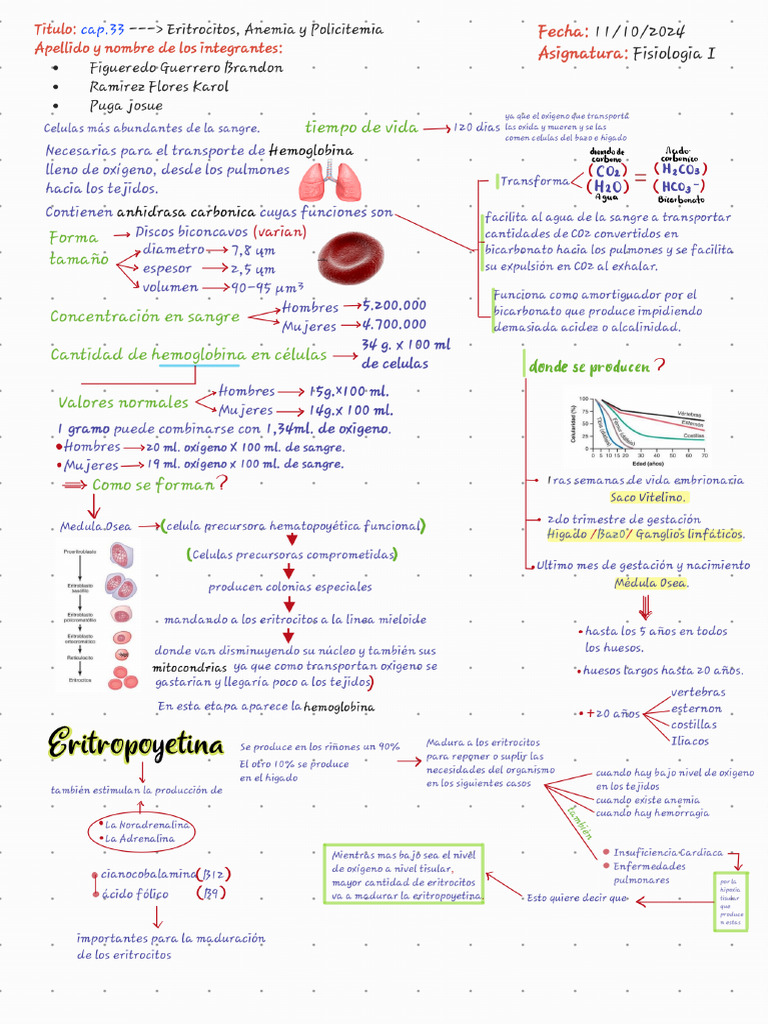 Titulo: cap.33 ---> Eritrocitos, Anemia y Politicemia
Apellido y nombre de los integrantes:
• Figueredo Guerrero Brandon
• Ramirez Flores Karol
• Puga josue
Fecha: 11/10/2024
Asignatura: Fisiologia I
Celulas más abundantes de la sangre.
tiempo de vida → 120 dias
ya que el oxigeno que transporta
las oxida y mueren y se las
comen celulas del bazo e higado
Necesarias para el transporte de Hemoglobina
lleno de oxígeno, desde los pulmones
hacia los tejidos.
Contienen anhidrasa carbonica cuyas funciones son
Transforma
dioxido de
carbono
(CO2)
(H2O)
Agua
=
Acido
carbonico
(H2CO3)
(HCO3-)
Bicarbonato
facilita al agua de la sangre a transportar
cantidades de CO2 convertidos en
bicarbonato hacia los pulmones y se facilita
su expulsión en CO2 al exhalar.
Funciona como amortiguador por el
bicarbonato que produce impidiendo
demasiada acidez o alcalinidad.
Forma → Discos biconcavos (varian)
tamaño
diametro → 7,8 um
espesor → 2,5 um
volumen → 90-95 µm³
Concentración en sangre
Hombres → 5.200.000
Mujeres → 4.700.000
Cantidad de hemoglobina en células → 34 g. x 100 ml
de celulas
Valores normales
Hombres → 15g.x100 ml.
Mujeres → 14g.x 100 ml.
1 gramo puede combinarse con 1,34ml. de oxigeno.
• Hombres → 20 ml. oxigeno X 100 ml. de sangre.
• Mujeres → 19 ml. oxigeno x 100 ml. de sangre.
donde se producen ?
Celularidad (%)
100
75
50
25
0
Vértebras
Esternón
Costillas
Tibia (diáfisis)
Fémur (diáfisis)
0 5 10 15 20 30 40 50 60 70
Edad (años)
• 1ras semanas de vida embrionaria
Saco Vitelino.
• 2do trimestre de gestación
Higado /Bazo/ Ganglios linfáticos.
• Ultimo mes de gestación y nacimiento
Médula Osea.
• hasta los 5 años en todos
los huesos.
• huesos largos hasta 20 años.
• +20 años
vertebras
esternon
costillas
Iliacos
⇒ Como se forman ?
Medula Osea → (celula precursora hematopoyética funcional)
(Celulas precursoras comprometidas)
producen colonias especiales
mandando a los eritrocitos a la linea mieloide
donde van disminuyendo su núcleo y también sus
mitocondrias ya que como transportan oxigeno se
gastarian y llegaría poco a los tejidos)
En esta etapa aparece la hemoglobina
Proeritroblasto
Eritroblasto
basófilo
Eritroblasto
policromatófilo
Eritroblasto
ortocromático
Reticulocito
Eritrocitos
Eritropoyetina
Se produce en los riñones un 90%
El otro 10% se produce
en el higado
Madura a los eritrocitos
para reponer o suplir las
necesidades del organismo
en los siguientes casos
cuando hay bajo nivel de oxigeno
en los tejidos
cuando existe anemia
cuando hay hemorragia
también
• Insuficiencia Cardiaca
• Enfermedades
pulmonares
por la
hipoxia
tisular
que
produce
n estas
Esto quiere decir que
Mientras mas bajo sea el nivel
de oxigeno a nivel tisular,
mayor cantidad de eritrocitos
va a madurar la eritropoyetina.
también estimulan la producción de
• La Noradrenalina
• La Adrenalina
cianocobalamina (B12)
ácido fólico (B9)
importantes para la maduración
de los eritrocitos